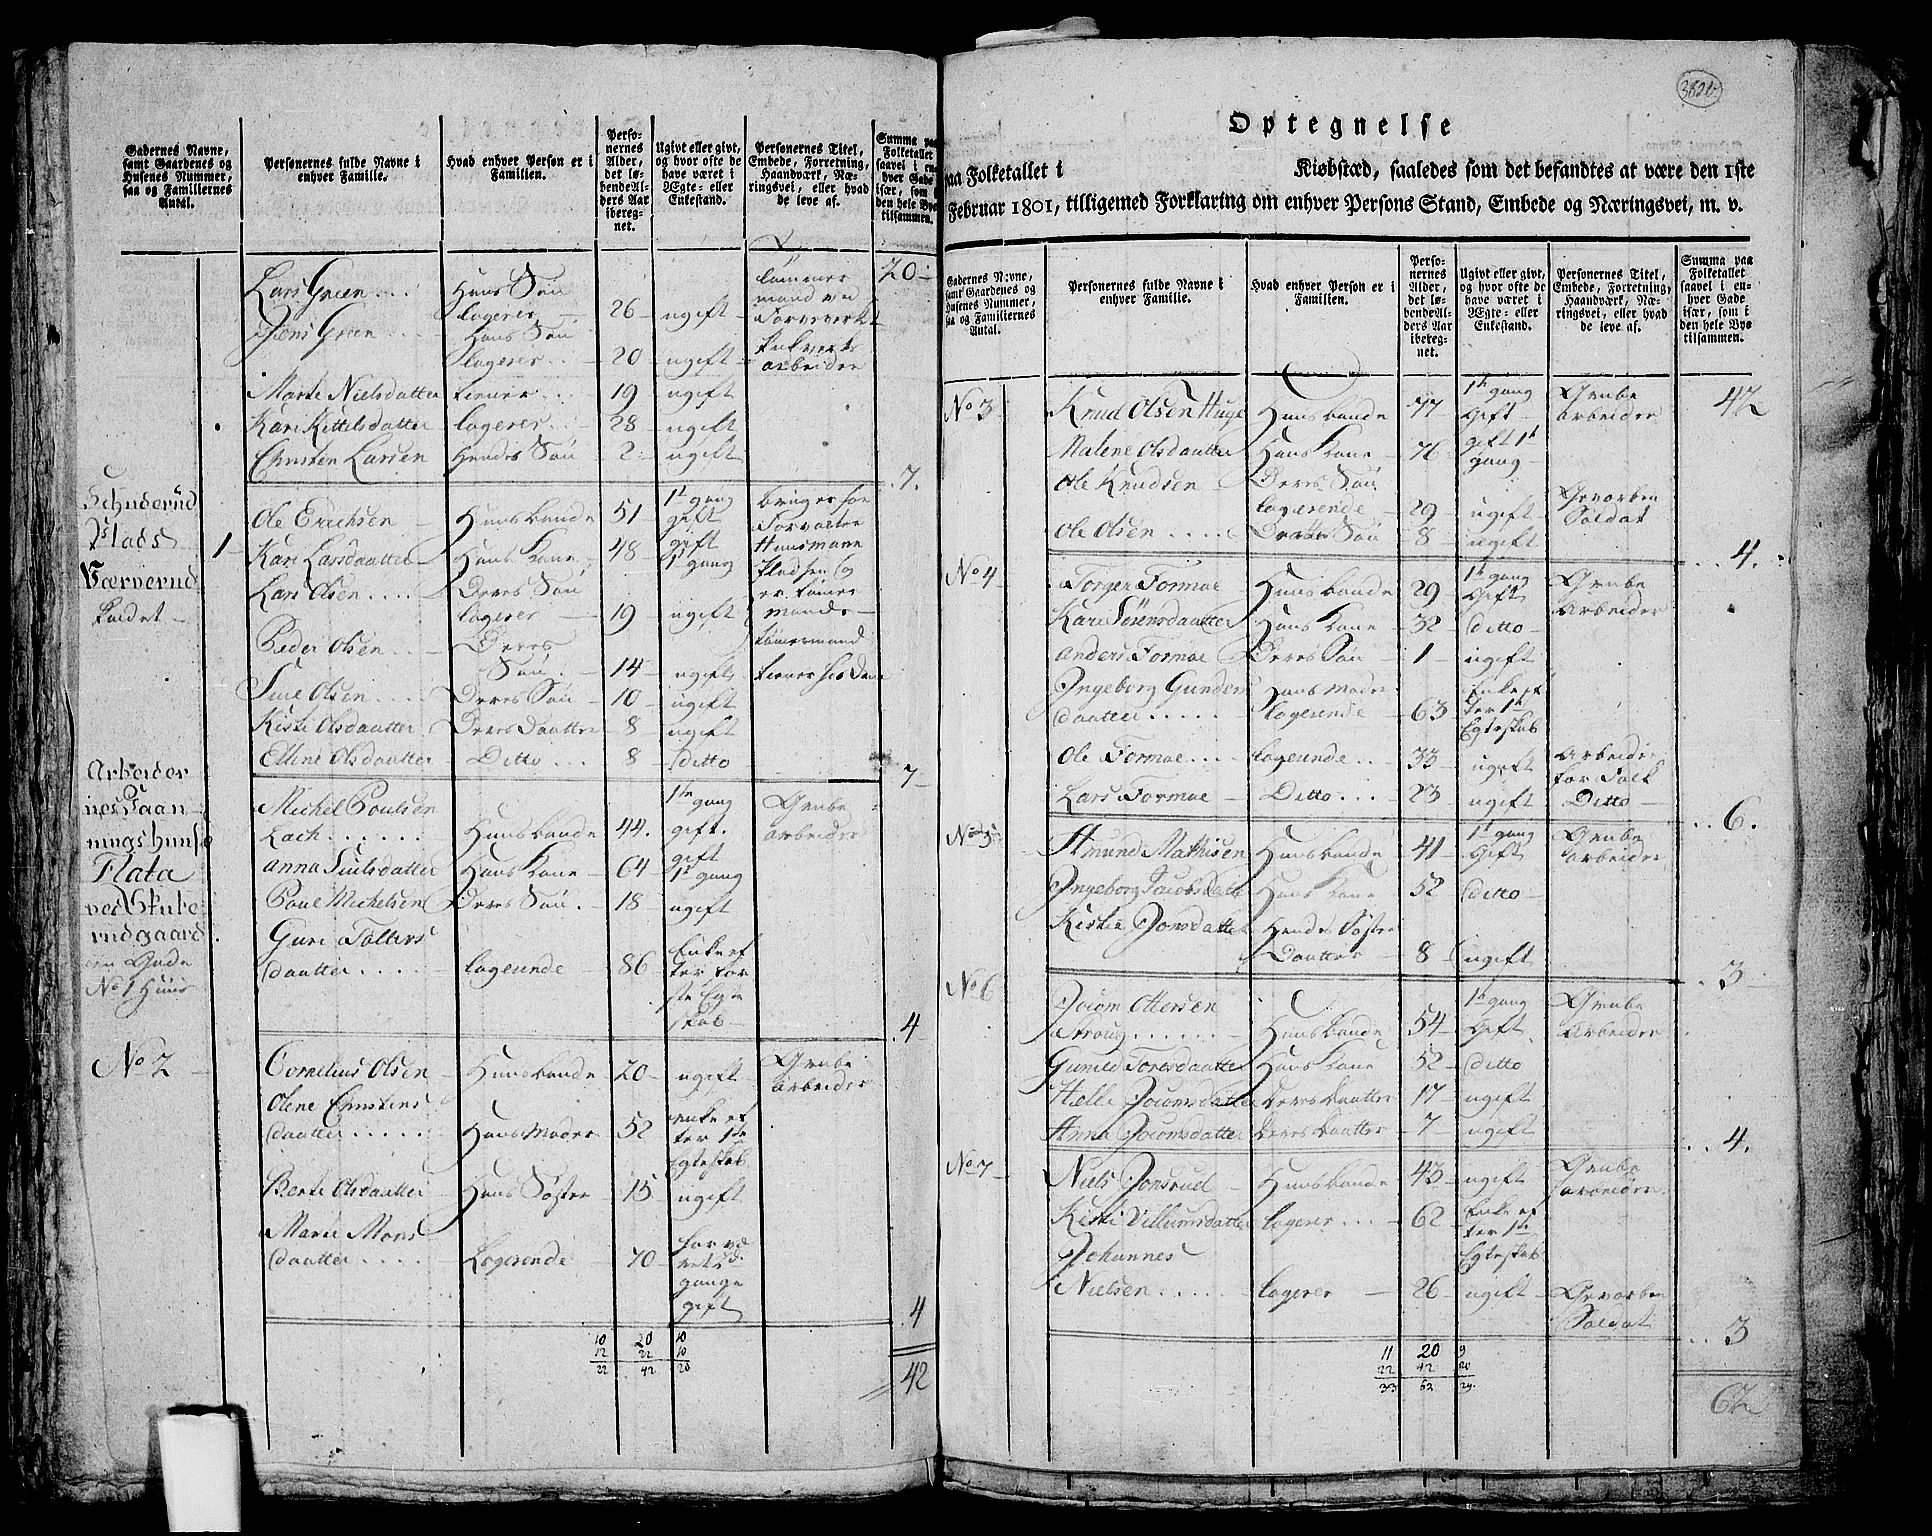 Gadernes Navne, samt Gaardenes og Husenes Nummer, saa og Familiernes Antal.
Personernes fulde Navne i enhver Familie.
Hvad enhver Person er i Familien.
Personernes Alder, det løbende Alders Aar iberegnet.
Ugivt eller givt, og hvor ofte de have været i Ægte- eller Enkestand.
Personernes Titel, Embede, Forretning, Haandværk, Næringsvei, eller hvad de leve af.
Summa paa Folketallet saavel i enhver Gade især, som i den hele Bye tilsammen.
20
Lars Green Hans Søn
logerer 26 ugift
Jens Green Hans Søn
logerer 20 ugift arbeider
Marte Nielsdatter tiener 19 ugift
Kari Kittelsdatter logerer 28 ugift
Christen Larsen Hendes Søn 2 ugift
7.
Plads 1
Ole Erichsen Huusbonde 51 1te gang gift
Kari Larsdaatter Hans Kone 48 gift 1te gang
Lars Olsen Deres Søn
logerer 19 ugift
Peder Olsen Deres
Søn 14 ugift
Olsen Deres Søn 10 ugift
Kisti Olsdaatter Deres Daatter 8 ugift
Olsdaatter Ditto 8 Ditto
7
Arbeider
Flata
No 1 Huus
Michel Poulsen
Huusbonde 44. 1te gang gift. Grube arbeider
Anna Hans Kone 64 gift 1te gang
Poul Michelsen Deres Søn 18 ugift
Guri
daatter logerende 86 Enke efter første Egteskab
4
No 2
Cornelius Olsen Huusbonde 20 ugift Grube arbeider
Olene Christens
daatter Hans Moder 52 enke efter 1te Egteskab
Berte Olsdaatter Hans Søster 15 ugift
Marie Mons
daatter Logerende 70 gange gift
4
10 20 10
12 22 10
22 42 20
42
382b
Optegnelse
paa Folketallet i Kiøbstæd, saaledes som det befandtes at være den 1ste
Februar 1801, tilligemed Forklaring om enhver Persons Stand, Embede og Næringsvei, m. v.
Gadernes Navne, samt Gaardenes og Husenes Nummer, saa og Familiernes Antal.
Personernes fulde Navne i enhver Familie.
Hvad enhver Person er i Familien.
Personernes Alder, det løbende Alders Aar iberegnet.
Ugivt eller givt, og hvor ofte de have været i Ægte- eller Enkestand.
Personernes Titel, Embede, Forretning, Haandværk, Næringsvei, eller hvad de leve af.
Summa paa Folketallet saavel i enhver Gade især, som i den hele Bye tilsammen.
42
No 3 Knud Olsen Huusbonde 77 1te gang Gift Grube Arbeider
Malene Olsdaatter Hans Kone 76 gift 1te gang
Ole Knudsen Deres Søn
logerende 29 ugift Gevorben Soldat
Ole Olsen Daatter Søn 8 ugift
4.
No 4 Torger Formoe Huusbonde 29 1te gang Gift Grube Arbeider
Kari Sørensdaatter Hans Kone 32 Ditto
Anders Formoe Deres Søn 1 ugift
Ingeborg Gunders
daatter Hans Moder logerende 63 Enke efter 1te Egteskab
Ole Formoe logerende 33 ugift Arbeider for Folk
Lars Formoe Ditto 23 ugift Ditto
6.
No 5 Amund Mathisen Huusbonde 41 1te gang Gift Grube Arbeider
Ingeborg Jacobsdatter Hans Kone 52 Ditto
Kistie Jonsdatter Hendes Søster
Daatter 8 ugift
3
No 6 Jocom Ottersen
Huusbonde 54 1te gang Gift Grube Arbeider
Gunild Toresdaatter Hans Kone 52 Ditto
Helle Jocomsdatter Deres Daatter 17 ugift
Anne Jocomsdatter Deres Daatter 7 ugift
4.
No 7 Niels Jonsrud Huusbonde 43 ugift Grube arbeider
Kisti Villumsdatter logerer 62 Enke efter 1te Egteskab
Johannes
Nielsen logerer 26 ugift Gevorben Soldat
3
11 20 9
22 42 20
33 62 29.
62